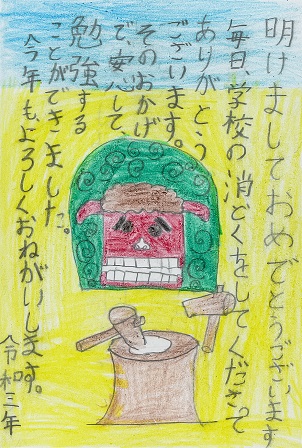 明けましておめでとうございます
毎日、学校の消どくをしてくださって
ありがとう
ございます。
そのおかげ
で、安心して、
勉強する
ことができました。
今年もよろしくおねがいします。
令和三年